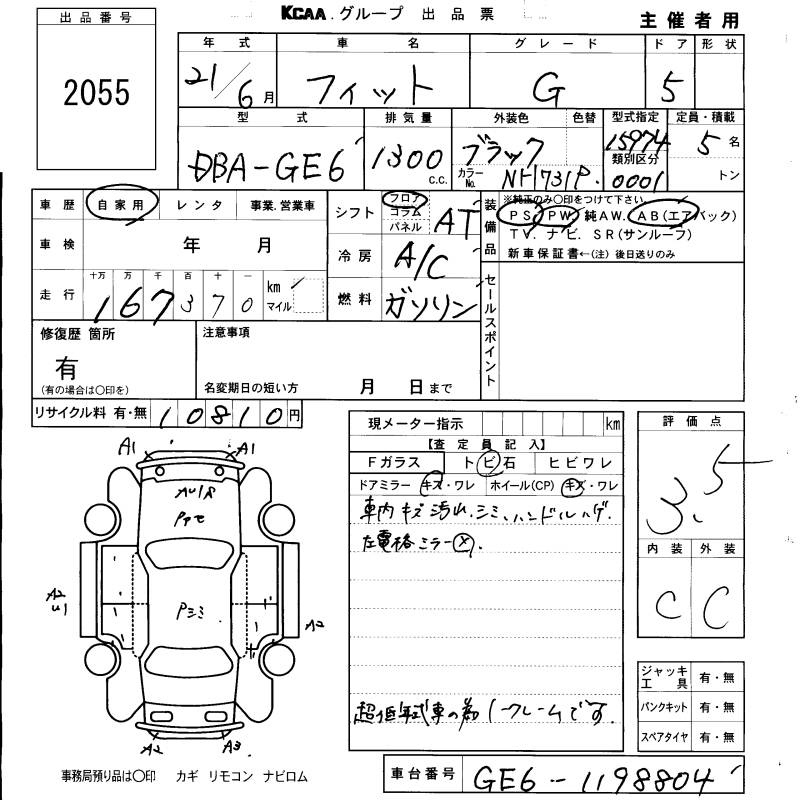 出品番号
2055
KCAA.グループ 出品票
主催者用
年式 車名 グレード ドア 形状
21/6月 フィット G 5
型式 排気量 外装色 色替 型式指定 定員・積載
DBA-GE6 1300 c.c. ブラック 15974 5名
カラーNo. NH731P. 類別区分 0001 トン
車歴 自家用 レンタ 事業.営業車
シフト フロア コラム パネル AT
装備品
※純正のみ〇印をつけて下さい。
PS PW 純AW. AB(エアバック)
TV. ナビ. SR(サンルーフ)
新車保証書←(注)後日送りのみ
車検 年 月
冷房 A/C
走行 十万 万 千 百 十 一
167370 km マイル
燃料 ガソリン
セールスポイント
修復歴 箇所
有
(有の場合は〇印を)
注意事項
名変期日の短い方 月 日まで
リサイクル料 有・無 10810円
現メーター指示 km
【査定員記入】
Fガラス トビ石 ヒビワレ
ドアミラー キズ・ワレ ホイール(CP) キズ・ワレ
車内キズ汚れ.シミ.ハンドルハゲ.
左電格ミラー⊗.
超低年式車の為ノークレームです.
評価点
3.5
内装 外装
C C
A1 A1
AU18
Pアセ
A2
U1
Pシミ
A2
A2 A3
ジャッキ工具 有・無
パンクキット 有・無
スペアタイヤ 有・無
事務局預り品は〇印 カギ リモコン ナビロム
車台番号 GE6-1198804